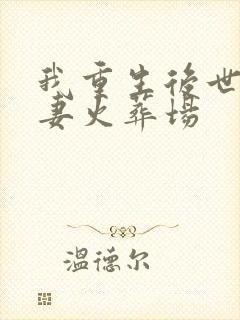 我重生後世
妻火葬場
温德尔